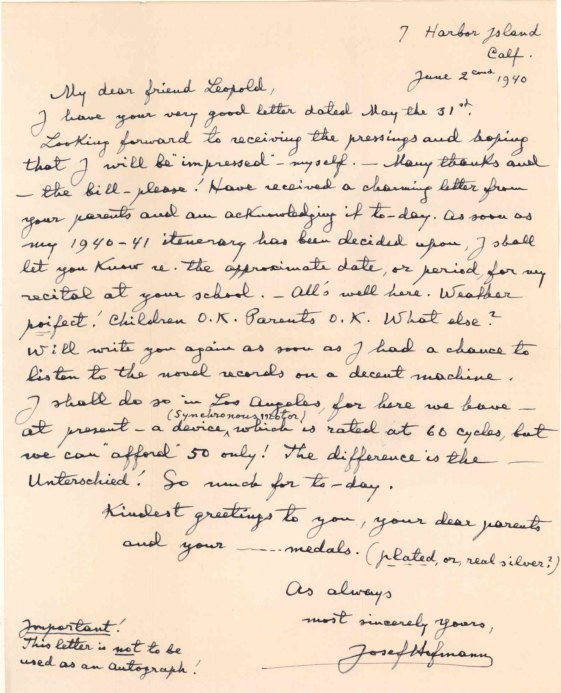 7 Harbor Island
Calf.
June 2end 1940
My dear friend Leopold,
I have your very good letter dated May the 31st.
Looking forward to receiving the pressings and hoping
that I will be "impressed" - myself. - Many thanks and
- the bill - please! Have received a charming letter from
your parents and am acknowledging it to-day. As soon as
my 1940-41 itenerary has been decided upon, I shall
let you know re. the approximate date, or period for my
recital at your school. - All's well here. Weather
poifect! Children O.K. Parents O.K. What else?
Will write you again as soon as I had a chance to
listen to the novel records on a decent machine.
I shall do so in Los Angeles, for here we have -
(Synchronous motor)
at present - a device, which is rated at 60 cycles, but
we can "afford" 50 only! The difference is the -
Unterschied! So much for to-day.
Kindest greetings to you, your dear parents
and your ----- medals. (plated, or, real silver?)
As always
most sincerely yours,
Josef Hofmann
Important!
This letter is not to be
used as an autograph!